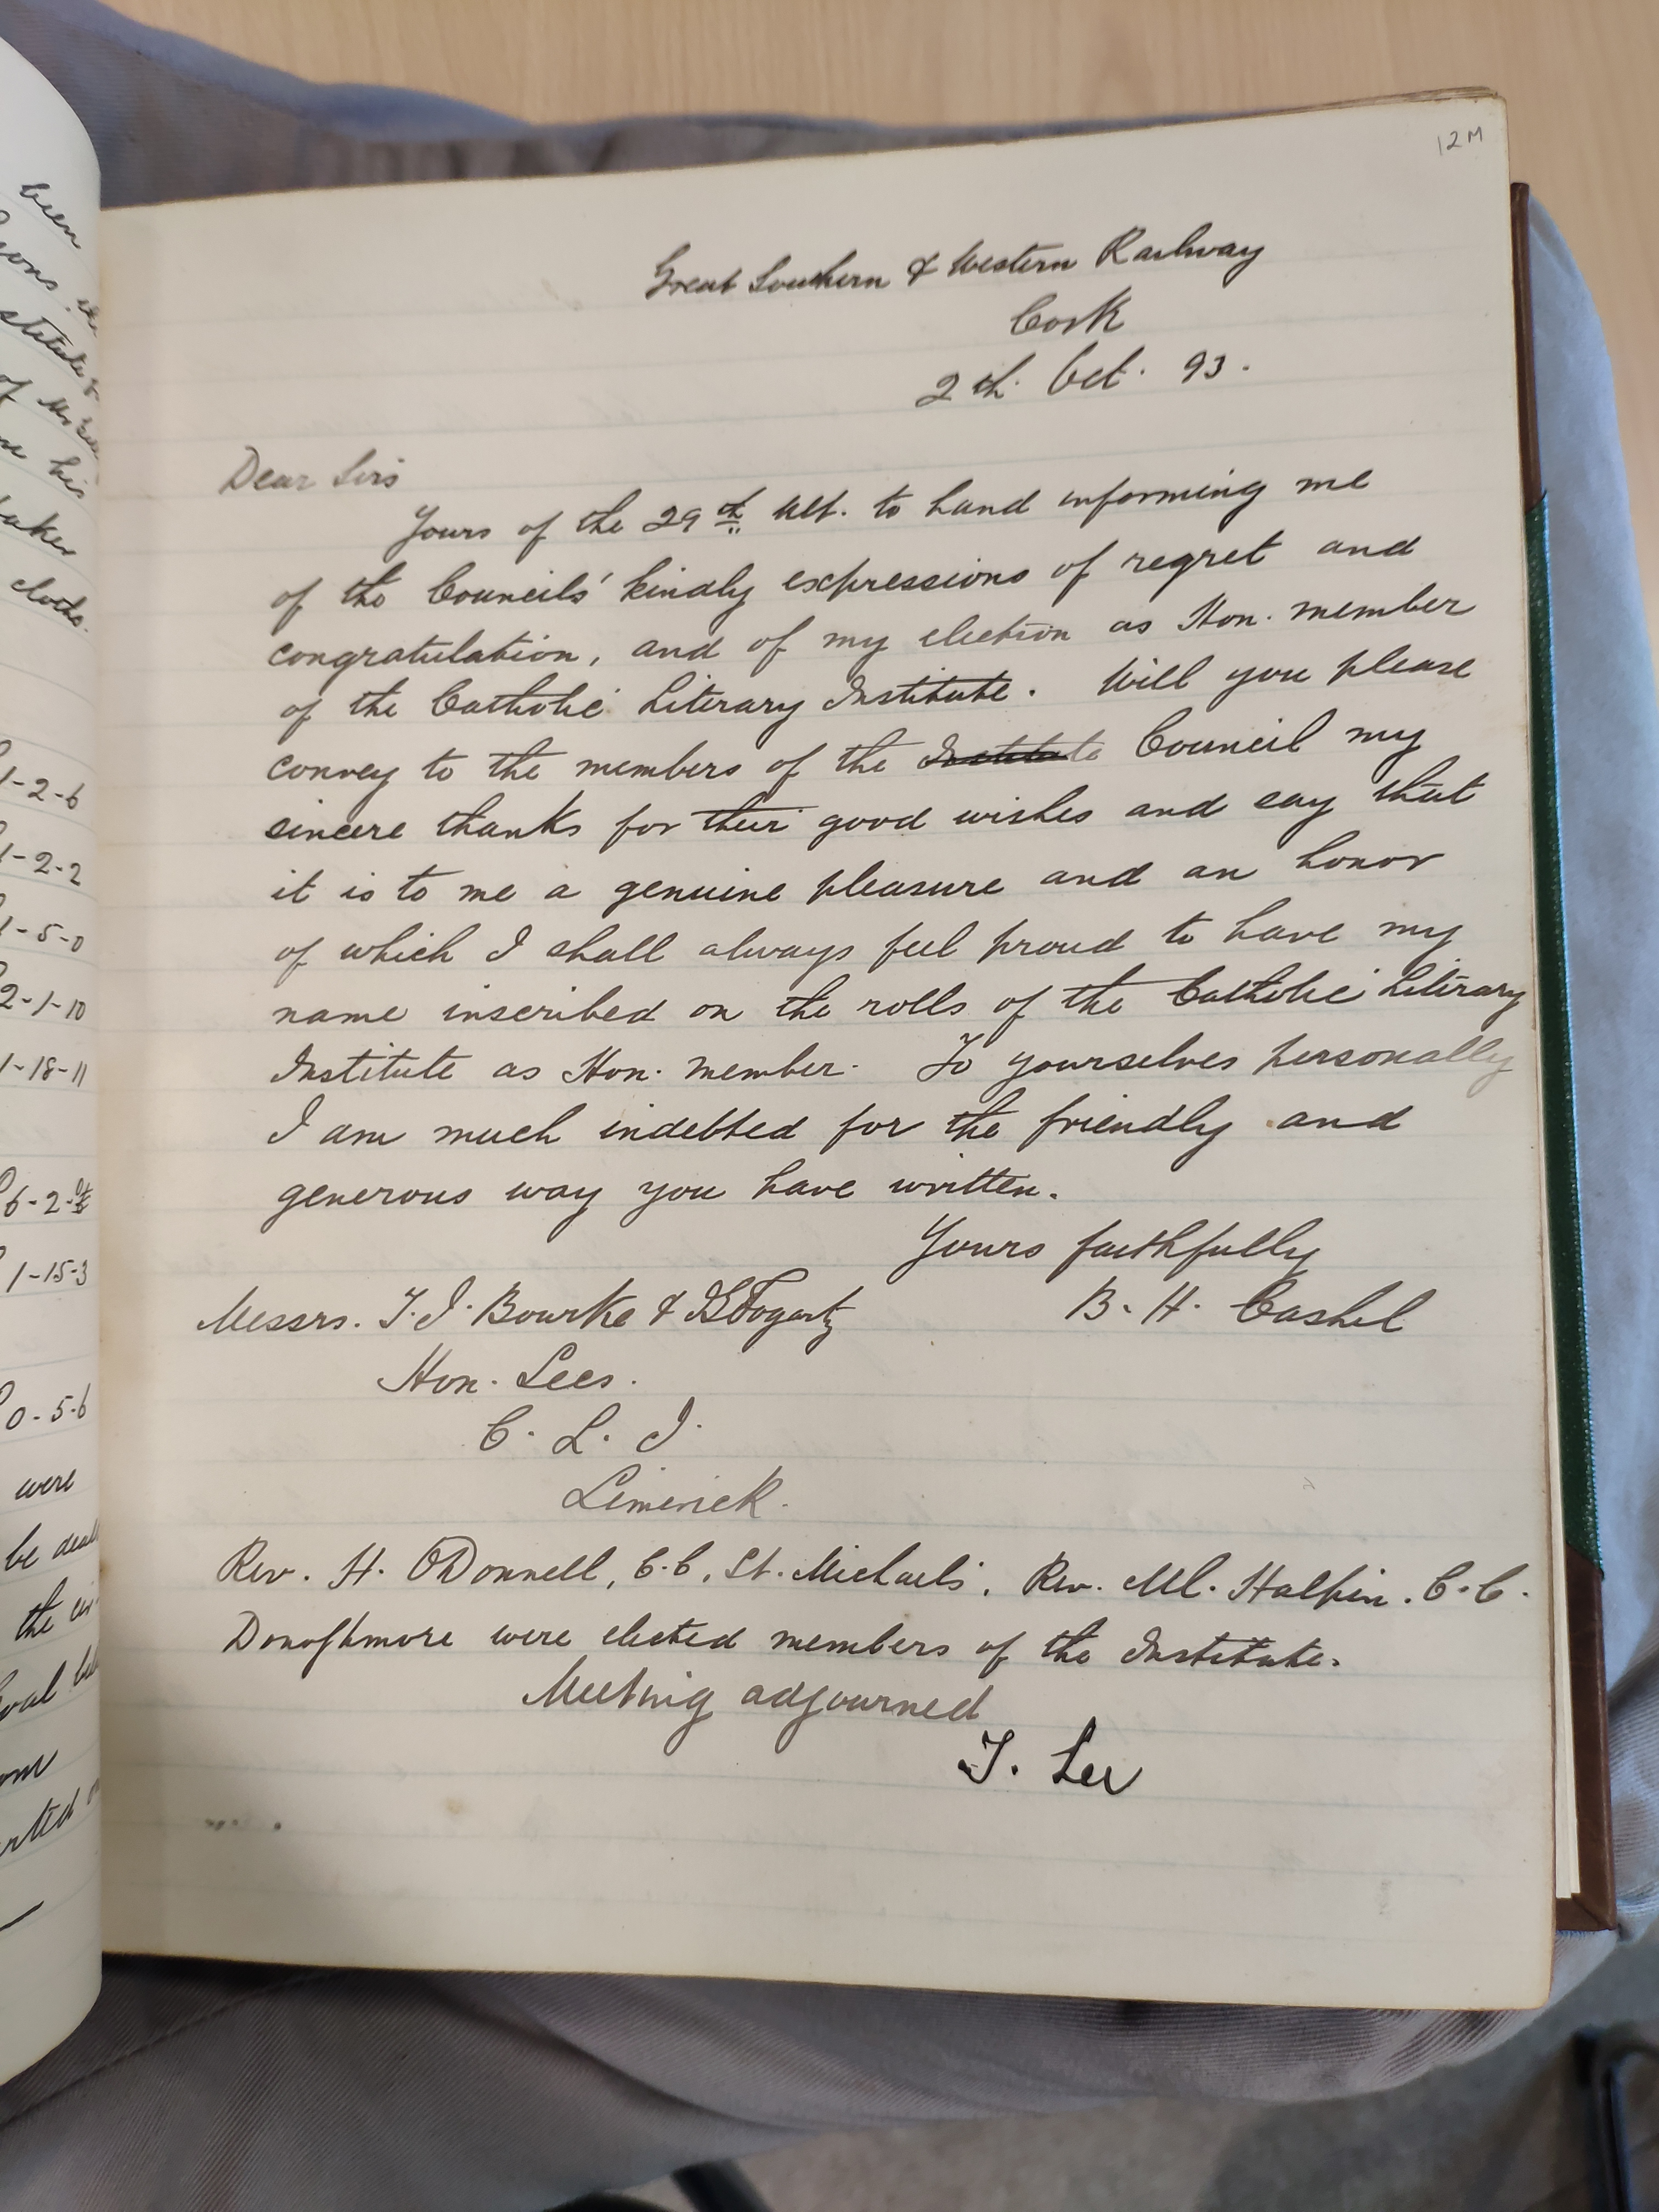 been
of
his
taken
cloths.
1-2-6
1-2-2
1-5-0
2-1-10
1-18-11
6-2-
1-15-3
0-5-6
were
be
the
12M
Great Southern & Western Railway
Cork
2th. Oct. 93.
Dear Sirs
Yours of the 29th Ult. to hand informing me
of the Councils' kindly expressions of regret and
congratulation, and of my election as Hon. member
of the Catholic Literary Institute. Will you please
convey to the members of the Institute Council my
sincere thanks for their good wishes and say that
it is to me a genuine pleasure and an honor
of which I shall always feel proud to have my
name inscribed on the rolls of the Catholic Literary
Institute as Hon. member. To yourselves personally
I am much indebted for the friendly and
generous way you have written.
Yours faithfully
Messrs. T. J. Bourke & Fogarty
B. H. Cashel
Hon. Secs.
C. L. I.
Limerick.
Rev. H. O'Donnell, C.C, St. Michael's, Rev. Ml. Halpin. C.C.
Donoghmore were elected members of the Institute.
Meeting adjourned
T. Lee